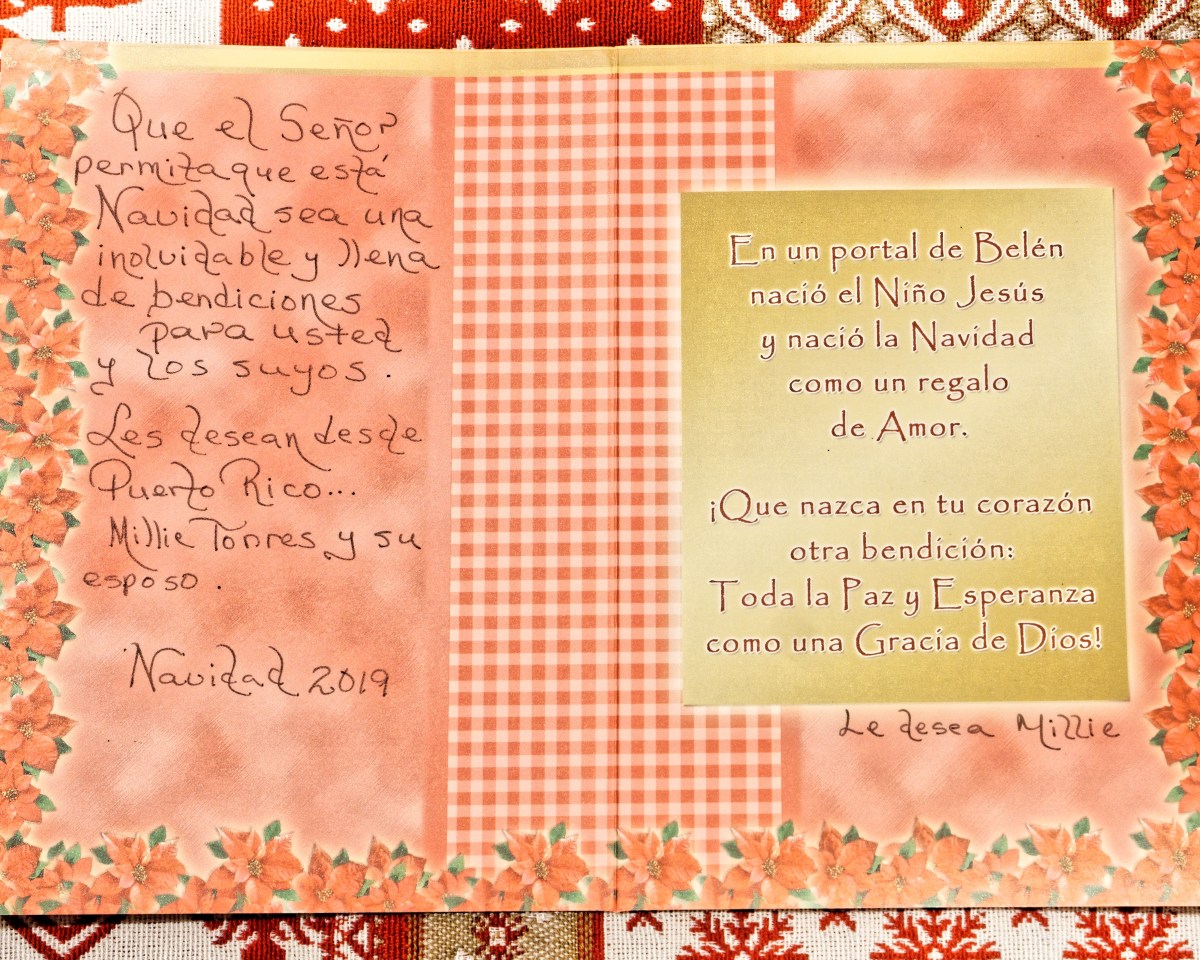 Que el Señor
permita que está
Navidad sea una
inolvidable y llena
de bendiciones
para usted
y los suyos.
Les desean desde
Puerto Rico...
Millie Torres y su
esposo.
Navidad 2019
En un portal de Belén
nació el Niño Jesús
y nació la Navidad
como un regalo
de Amor.
¡Que nazca en tu corazón
otra bendición:
Toda la Paz y Esperanza
como una Gracia de Dios!
Le desea Millie